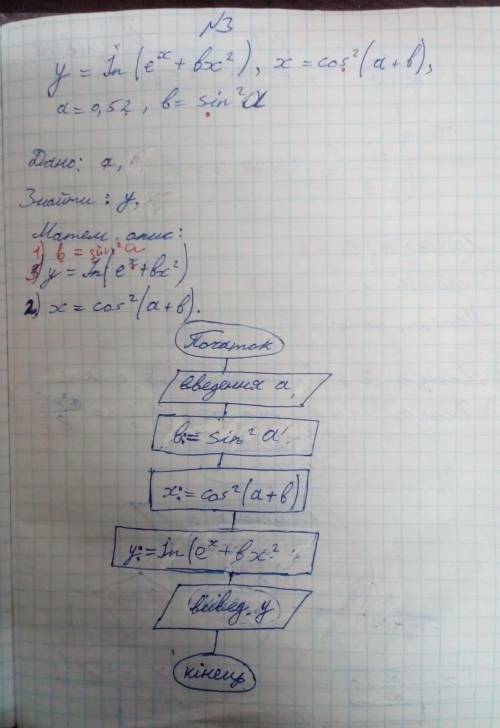 №3
y = ln(eˣ + bx²), x = cos²(a+b),
a = 0,52, b = sin²a
Дано: a,
Знайти: y,
Матем. опис:
1) b = sin²a
3) y = ln(eˣ + bx²)
2) x = cos²(a+b).
Початок
введення a,
b:= sin²a
x:= cos²(a+b)
y:= ln(eˣ + bx²
вивед. y
кінець